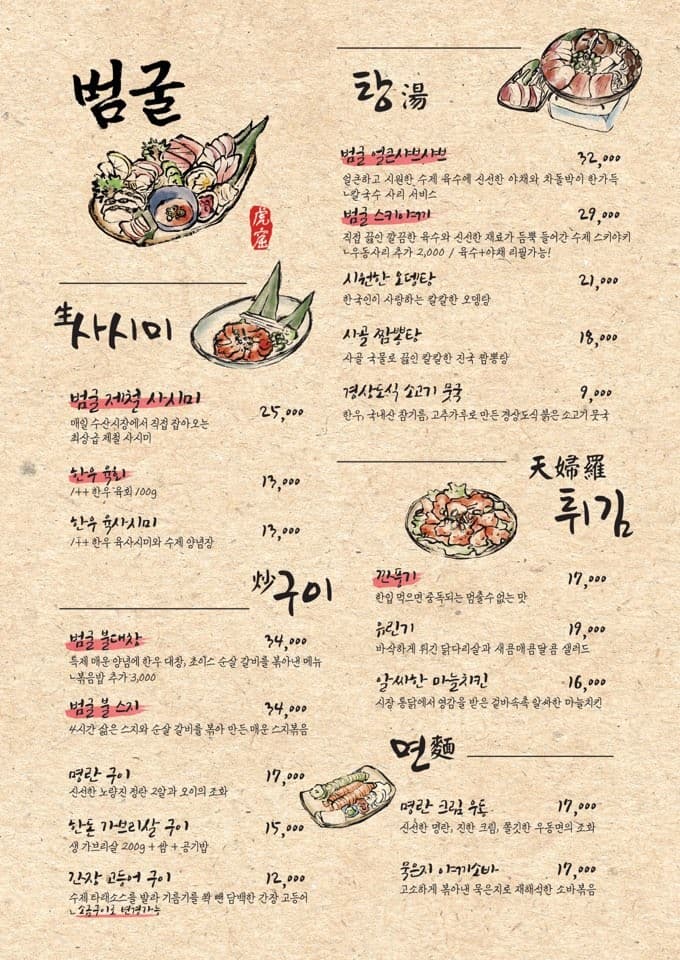 범굴
虎窟
生사시미
범굴 제철 사시미 25,000
매일 수산시장에서 직접 잡아오는
최상급 제철 사시미
한우 육회 13,000
1++ 한우 육회 100g
한우 육사시미 13,000
1++ 한우 육사시미와 수제 양념장
炒구이
범굴 불대창 34,000
특제 매운 양념에 한우 대창, 초이스 순살 갈비를 볶아낸 메뉴
ㄴ볶음밥 추가 3,000
범굴 불스지 34,000
4시간 삶은 스지와 순살 갈비를 볶아 만든 매운 스지볶음
명란 구이 17,000
신선한 노량진 정란 2알과 오이의 조화
한돈 가브리살 구이 15,000
생 가브리살 200g + 쌈 + 공기밥
간장 고등어 구이 12,000
수제 타래소스를 발라 기름기를 쫙 뺀 담백한 간장 고등어
ㄴ소금구이로 변경가능
탕 湯
범굴 얼큰샤브샤브 32,000
얼큰하고 시원한 수제 육수에 신선한 야채와 차돌박이 한가득
ㄴ칼국수 사리 서비스
범굴 스키야키 29,000
직접 끓인 깔끔한 육수와 신선한 재료가 듬뿍 들어간 수제 스키야키
ㄴ우동사리 추가 2,000 / 육수+야채 리필가능!
시원한 오뎅탕 21,000
한국인이 사랑하는 칼칼한 오뎅탕
사골 짬뽕탕 18,000
사골 국물로 끓인 칼칼한 진국 짬뽕탕
경상도식 소고기 뭇국 9,000
한우, 국내산 참기름, 고추가루로 만든 경상도식 붉은 소고기 뭇국
天婦羅
튀김
깐풍기 17,000
한입 먹으면 중독되는 멈출수 없는 맛
유린기 19,000
바삭하게 튀긴 닭다리살과 새콤매콤달콤 샐러드
알싸한 마늘치킨 16,000
시장 통닭에서 영감을 받은 겉바속촉 알싸한 마늘치킨
면麵
명란 크림 우동 17,000
신선한 명란, 진한 크림, 쫄깃한 우동면의 조화
묵은지 야끼소바 17,000
고소하게 볶아낸 묵은지로 재해석한 소바볶음